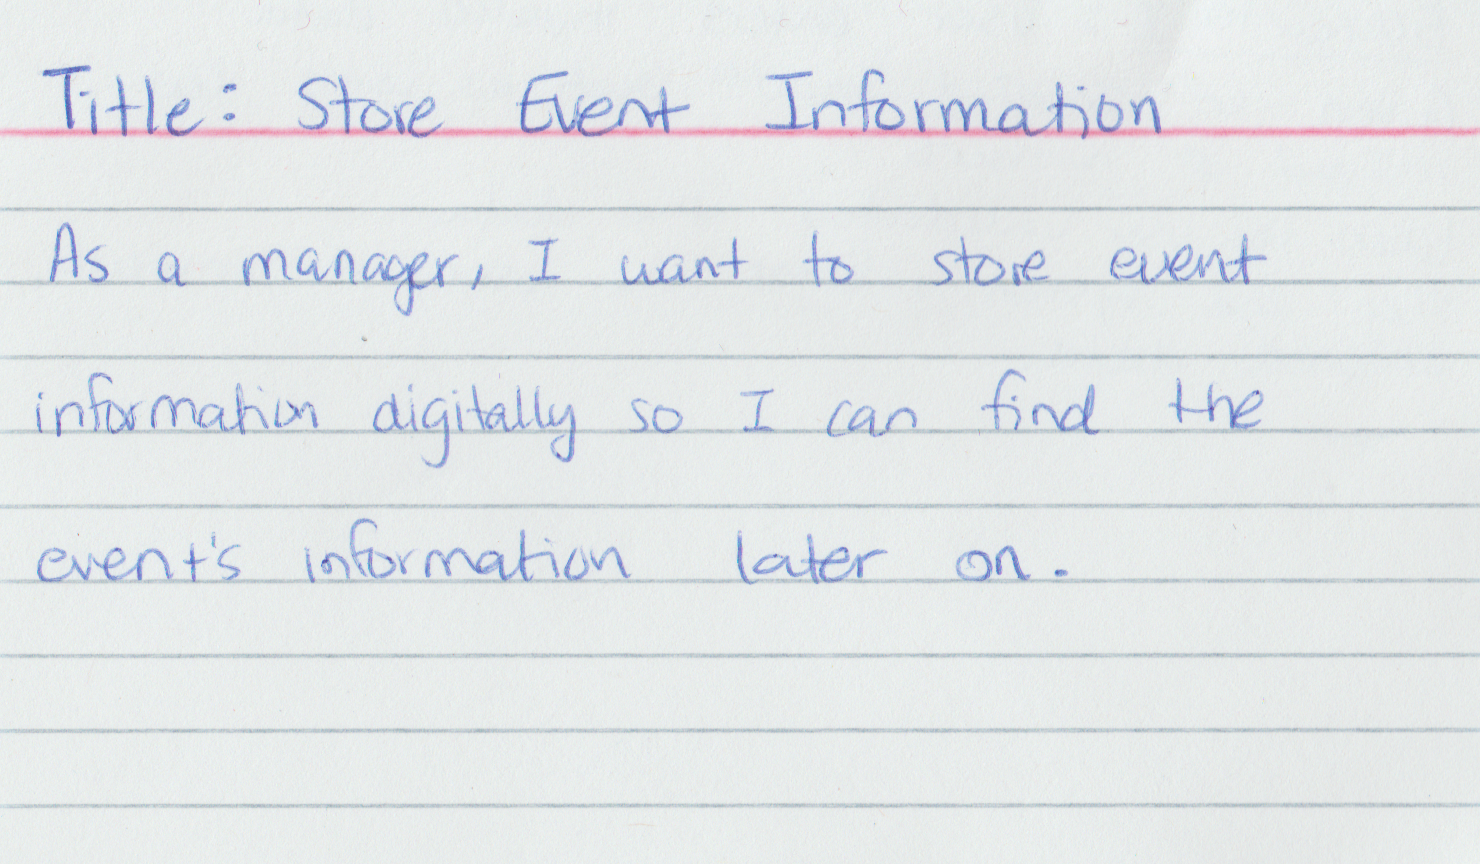 Title: Store Event Information
As a manager, I want to store event
information digitally so I can find the
event's information later on.